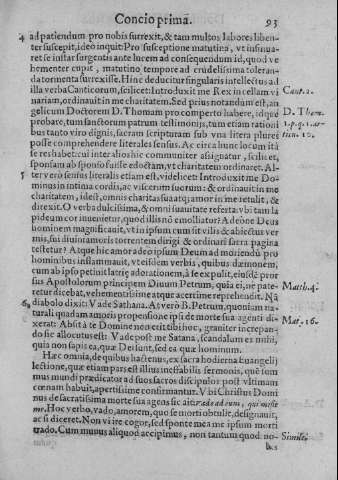 Concio prima.
93
4 ad patiendum pro nobis surrexit, & tam multos labores liben-
ter suscepit, ideo inquit: Pro susceptione matutina, vt insinua-
ret se instar surgentis ante lucem ad consequendum id, quod ve
hementer cupit, matutino tempore ad crudelissima toleran-
da tormenta surrexisse. Hinc deducitur singularis intellectus ad
illa verba Canticorum, scilicet: Introduxit me Rex in cellam vi
Cant. 2.
nariam, ordinauit in me charitatem. Sed prius notandum est, an
gelicum Doctorem D. Thomam pro comperto habere, idque
D. Thom.
probare, tum sanctorum patrum testimonijs, tum etiam rationi
1. p. q. 1. ar-
bus tanto viro dignis, sacram scripturam sub vna litera plures
ticu. 10.
posse comprehendere literales sensus. Ac circa hunc locum ita
se res habet: cui inter alios hic communiter assignatur, scilicet,
sponsam ab sponso fuisse edoctam, vt charitatem ordinaret. Al-
5 ter verò sensus literalis etiam est, videlicet: Introduxit me Do-
minus in intima cordis, ac viscerum suorum: & ordinauit in me
charitatem, id est, omnis charitas suaatq; amor in me retulit, &
direxit. O verba dulcissima, & omni suauitate referta: vbi tam la
pideum cor inuenietur, quod illis nõ emolliatur? Adeòne Deus
hominem magnificauit, vt in ipsum cum sit vilis & abiectus ver
mis, sui diuini amoris torrentem dirigi & ordinari sacra pagina
testetur? Atque hic amor adeo ipsum Deum ad moriendũ pro
hominibus inflammauit, vt eisdem verbis, quibus dæmonem,
cum ab ipso petinit latriæ adorationem, à se expulit, eiusdẽ pror
sus Apostolorum principem Diuum Petrum, quia ei, ne pate-
retur dicebat, vehementissime atque acerrime reprehendit. Nã
Matth. 4.
6 diabolo dixit: Vade Sathana. At verò B. Petrum, quoniam na-
turali quadam amoris propensione ipsi de morte sua agenti di-
xerat: Absit à te Domine non erit tibi hoc, grauiter increpan-
Mat. 16.
do sic allocutus est: Vade post me Satana, scandalum es mihi,
quia non sapis ea, quæ Dei sunt, sed ea quæ hominum.
Hæc omnia, de quibus hactenus, ex sacra hodierna Euangelij
lectione, quæ etiam pars est illius ineffabilis sermonis, quẽ sum
mus mundi prædicator ad suos sacros discipulos post vltimam
cœnam habuit, apertissime confirmantur. Vbi Christus Domi
nus de sacratissima morte sua agens sic ait: vado ad eum, qui misit
me. Hoc verbo, vado, amorem, quo se morti obtulit, designauit,
ac si diceret. Non vi ire cogor, sed sponte mea me ipsum morti
trado. Cum munus aliquod accipimus, non tantum quod no-
Simile.
bis